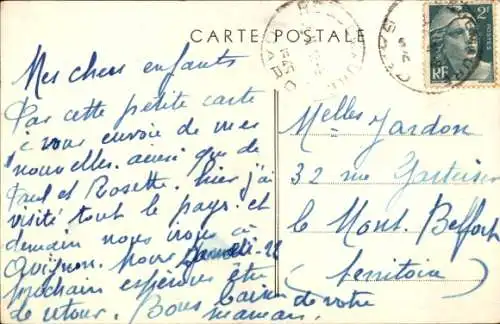 CARTE POSTALE
2F
POSTES
RF
Mes chers enfants
Par cette petite carte
je vous envoie de mes
nouvelles ainsi que de
Paul et Rosette. hier j'ai
visité tout le pays. et
demain nous irons à
Avignon. Nous
prochain espérons être
de retour. Bons baisers de votre
maman.
Melles Jardon
32 rue
le Mont. Belfort
(territoire)